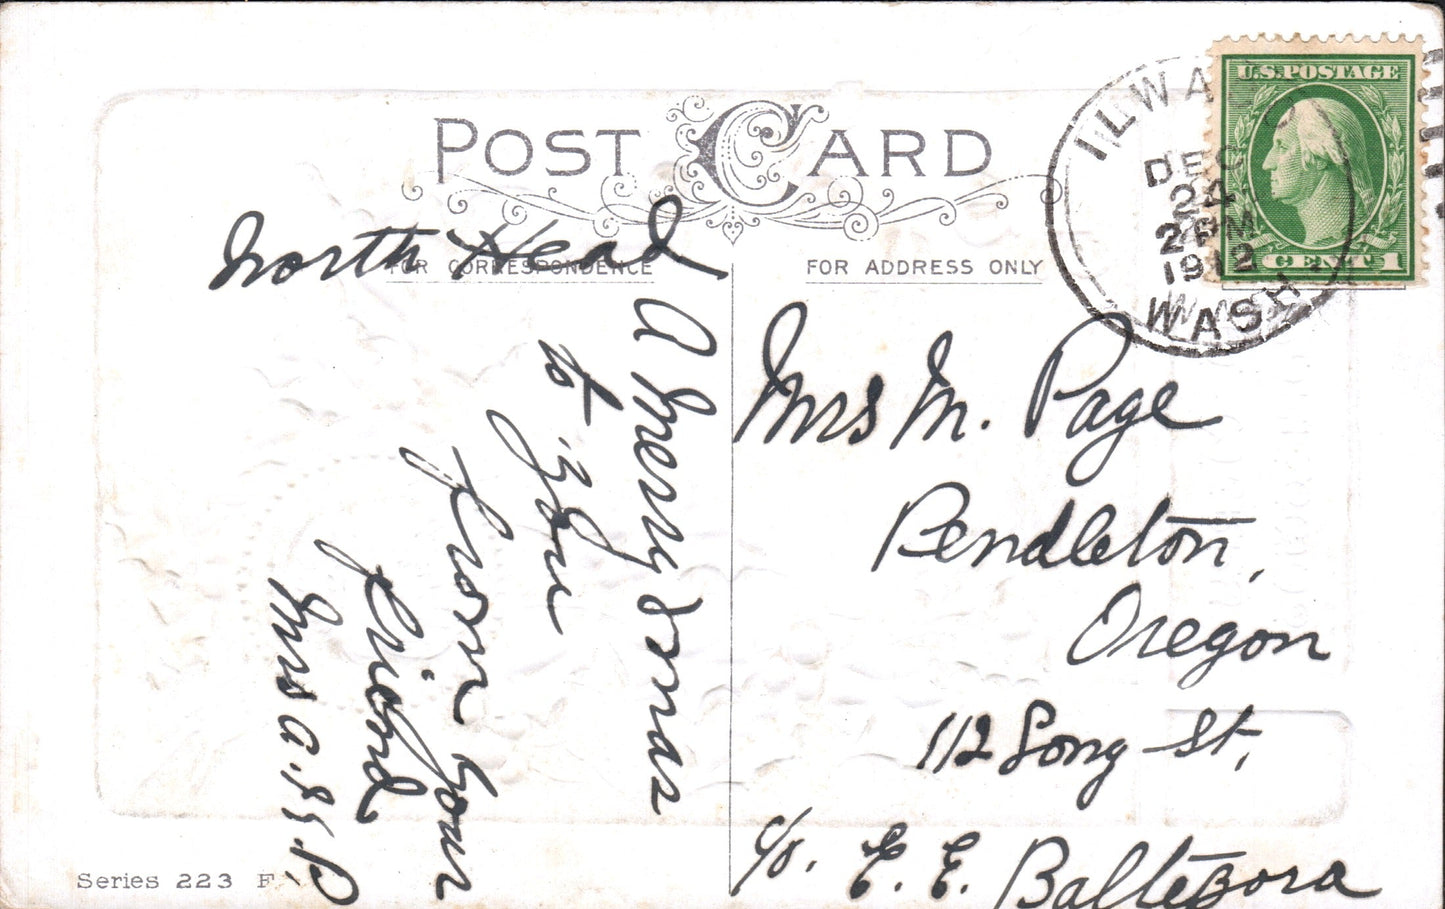 POST CARD
FOR CORRESPONDENCE
FOR ADDRESS ONLY
U.S.POSTAGE
CENT 1
ILWACO
DEC
24
2 PM
1912
WASH.
North Head
A Merry Xmas
to
You
from your
friend
Mrs A.
Mrs M. Page
Pendleton,
Oregon
112 Long St,
c/o. E. E. Baltezora
Series 223 F